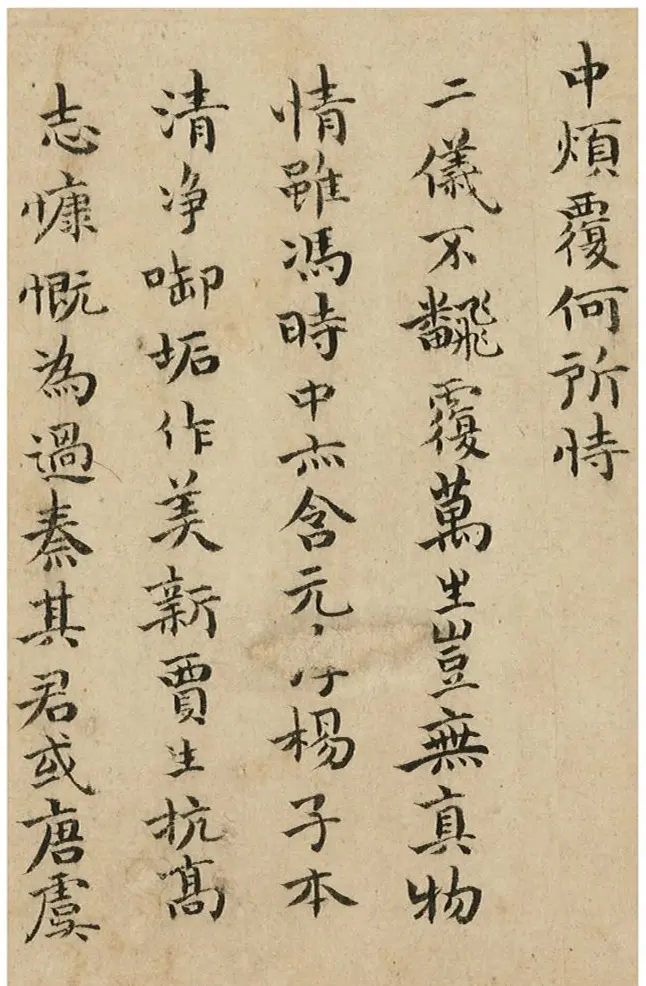 中煩覆何所恃
二儀不飜覆萬生豈無真物
情雖馮時中亦含元楊子本
清净啣垢作美新賈生抗髙
志慷慨為過秦其君或唐虞